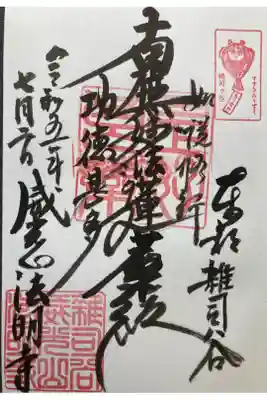 すすきみみずく
東都雑司谷
如説修行
南無妙法蓮華経
功徳甚多
威光山法明寺
令和五年
七月
雑司谷
威光山
法明寺